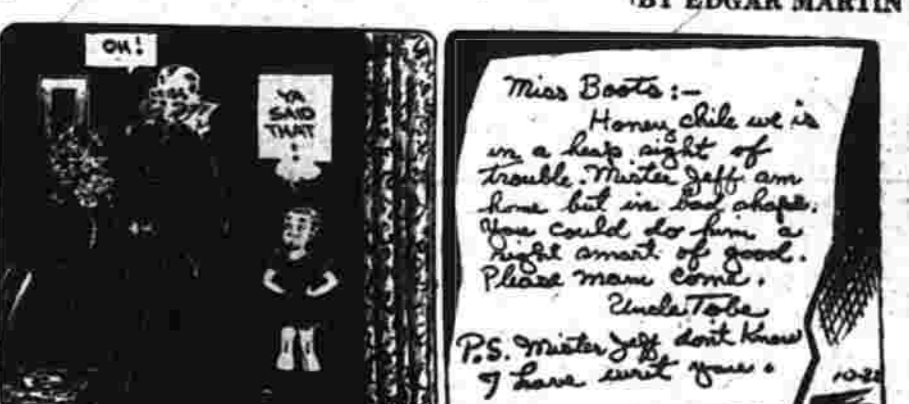 BY EDGAR MARTIN
OH!
YA
SAID
THAT
!
Miss Boots:—
Honey chile we is
in a heap sight of
trouble. Mister Jeff am
home but in bad shape.
You could do him a
right smart of good.
Please mam come.
Uncle Tobe
P.S. Mister Jeff don't know
I have writ youse.